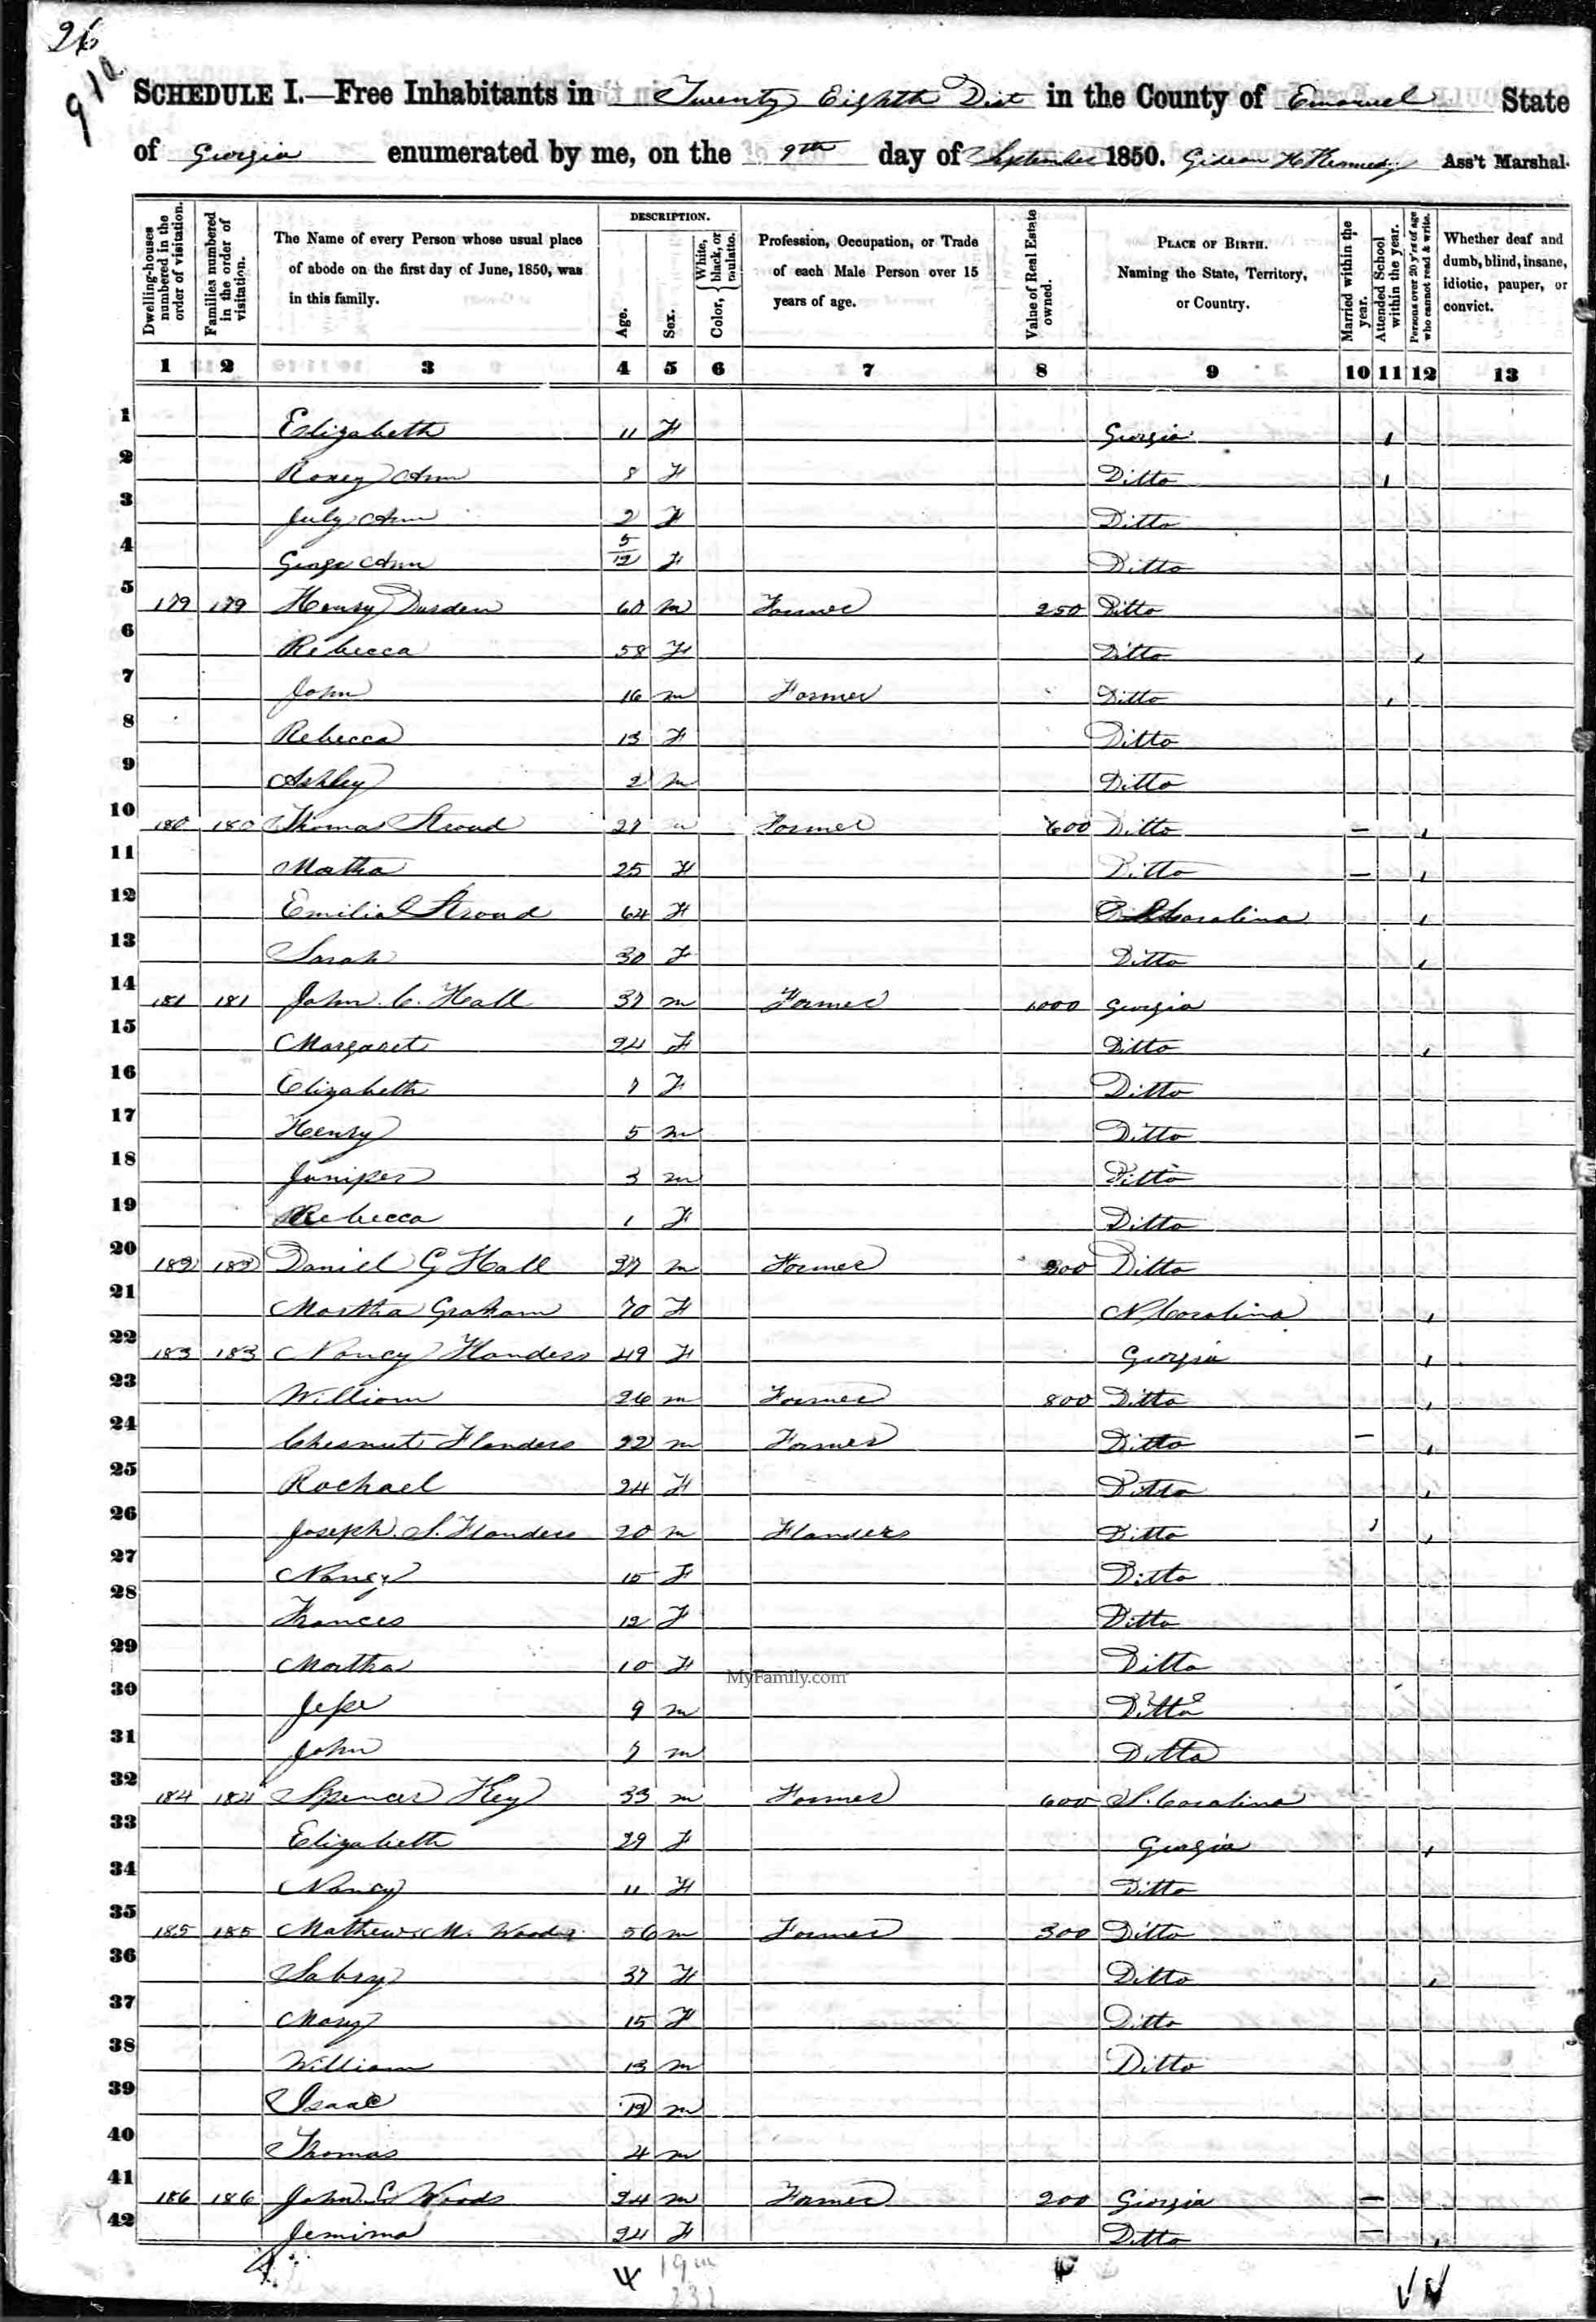 26
910
SCHEDULE I.—Free Inhabitants in Twenty Eighth Dist in the County of Emanuel State
of Georgia enumerated by me, on the 9th day of September 1850. Gideon H Kennedy Ass't Marshal.
Dwelling-houses numbered in the order of visitation.
Families numbered in the order of visitation.
The Name of every Person whose usual place of abode on the first day of June, 1850, was in this family.
DESCRIPTION.
Age.
Sex.
Color, { White, black, or mulatto.
Profession, Occupation, or Trade of each Male Person over 15 years of age.
Value of Real Estate owned.
PLACE OF BIRTH. Naming the State, Territory, or Country.
Married within the year.
Attended School within the year.
Persons over 20 y'rs of age who cannot read & write.
Whether deaf and dumb, blind, insane, idiotic, pauper, or convict.
1 2 3 4 5 6 7 8 9 10 11 12 13
1 Elizabeth 11 F Georgia
2 Roxey Ann 8 F Ditto
3 July Ann 2 F Ditto
4 George Ann 5/12 F Ditto
5 179 179 Henry Durden 60 m Farmer 250 Ditto
6 Rebecca 58 F Ditto
7 John 16 m Farmer Ditto
8 Rebecca 13 F Ditto
9 Ashley 2 m Ditto
10 180 180 Thomas Stroud 27 m Farmer 600 Ditto
11 Martha 25 F Ditto
12 Emilia Stroud 64 F Carolina
13 Sarah 30 F Ditto
14 181 181 John C. Hall 37 m Farmer 1000 Georgia
15 Margaret 24 F Ditto
16 Elizabeth 7 F Ditto
17 Henry 5 m Ditto
18 Juniper 3 m Ditto
19 Rebecca 1 F Ditto
20 182 182 Daniel G Hall 37 m Farmer 300 Ditto
21 Martha Graham 70 F N Carolina
22 183 183 Nancy Flanders 49 F Georgia
23 William 26 m Farmer 800 Ditto
24 Chesnut Flanders 22 m Farmer Ditto
25 Rachael 24 F Ditto
26 Joseph S. Flanders 20 m Flanders Ditto
27 Nancy 15 F Ditto
28 Frances 12 F Ditto
29 Martha 10 F Ditto
30 Jesse 9 m Ditto
31 John 7 m Ditto
32 184 184 Spencer Key 33 m Farmer 600 S. Carolina
33 Elizabeth 29 F Georgia
34 Nancy 11 F Ditto
35 185 185 Mathew M. Woods 56 m Farmer 300 Ditto
36 Sabry 37 F Ditto
37 Mary 15 F Ditto
38 William 13 m Ditto
39 Isaac 12 m
40 Thomas 4 m
41 186 186 John Woods 24 m Farmer 200 Georgia
42 Jemima 24 F Ditto
MyFamily.com
19m
232